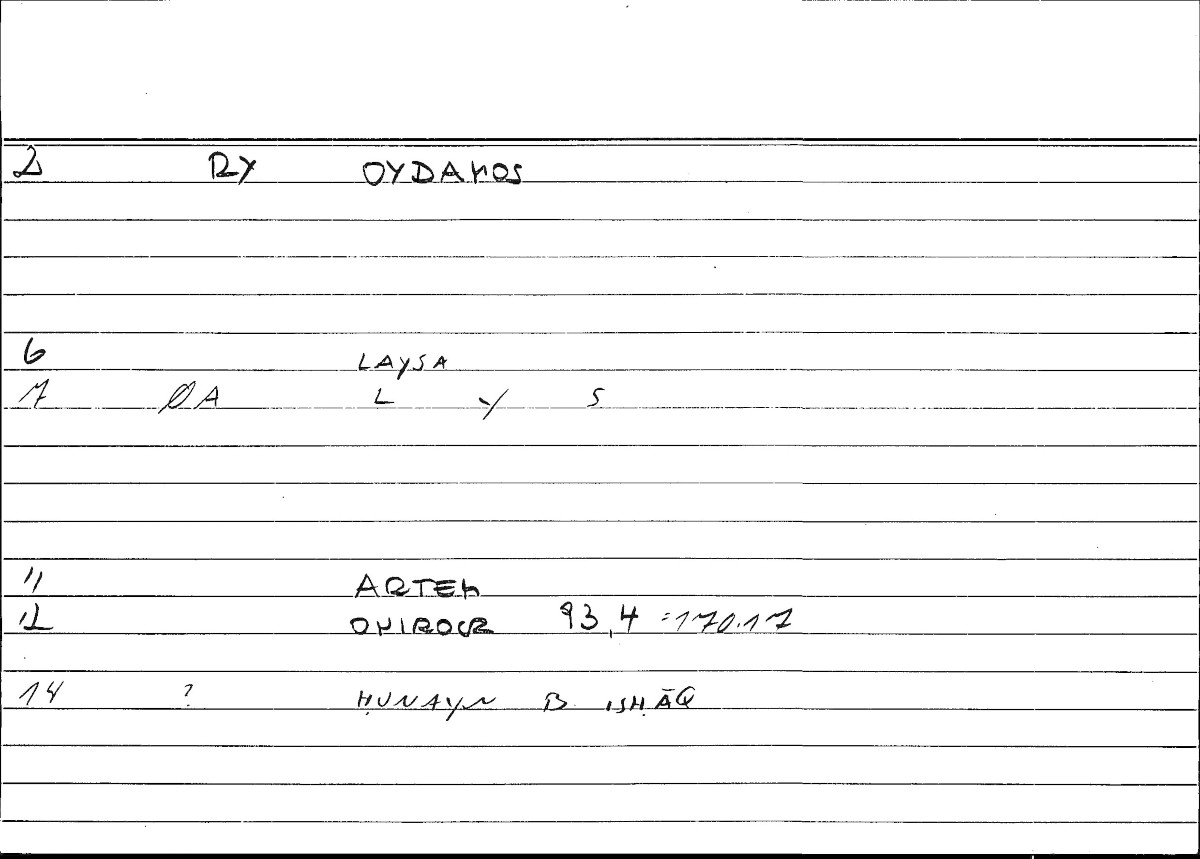 2 RY OYDAMOS
6 LAYSA
7 ØA L Y S
11 ARTEM
12 ONIROCR 93,4 =170.17
14 ? ḤUNAYN B ISḤĀQ